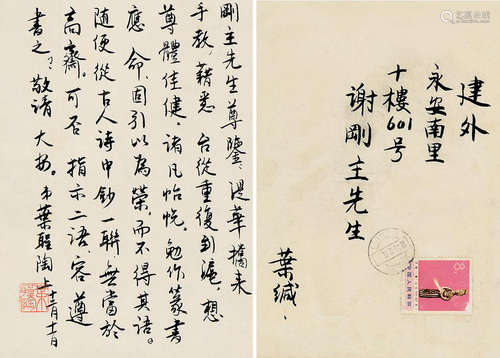 剛主先生尊鑒：湜華攜来
手教，藉悉 台從重復到滬，想
尊體佳健，諸凡怡悅。勉作篆書
應 命，固引以為榮，而不得其語。
隨便從古人詩中鈔一聯，無當於
高齋。可否 指示二語，容遵
書之？敬請 大安。弟葉聖陶上
建外
永安南里
十樓601号
谢剛主先生
葉緘
8
中国人民邮政